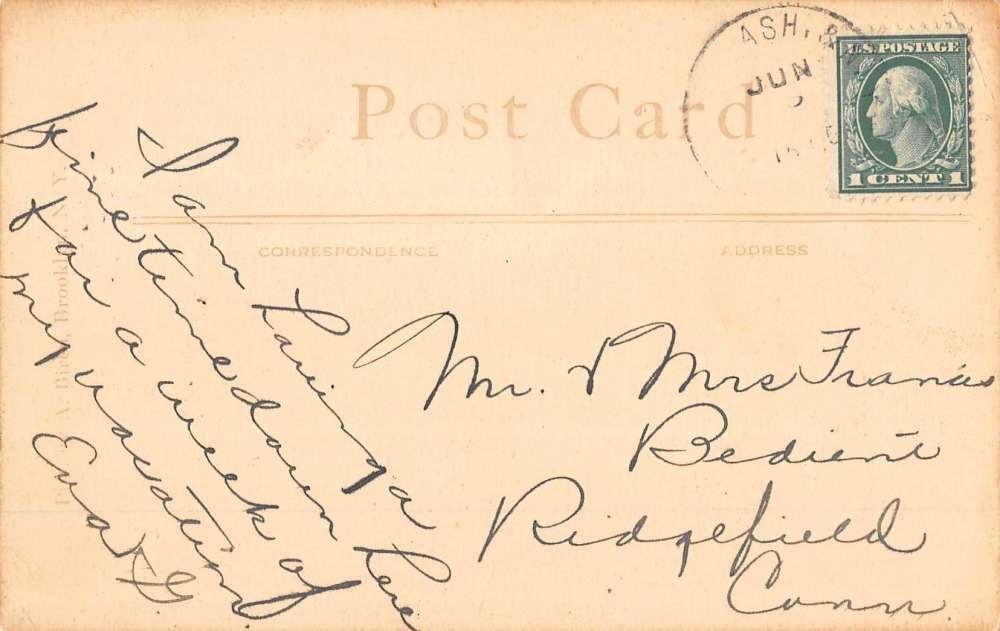 Post Card
ASH. &
JUN
U.S. POSTAGE
1 CENT 1
CORRESPONDENCE
ADDRESS
I am having a
fine time down here
for a week of
my vacation
Eva F G.
Mr. & Mrs Francis
Bedient
Ridgefield
Conn
Brooklyn, N. Y.